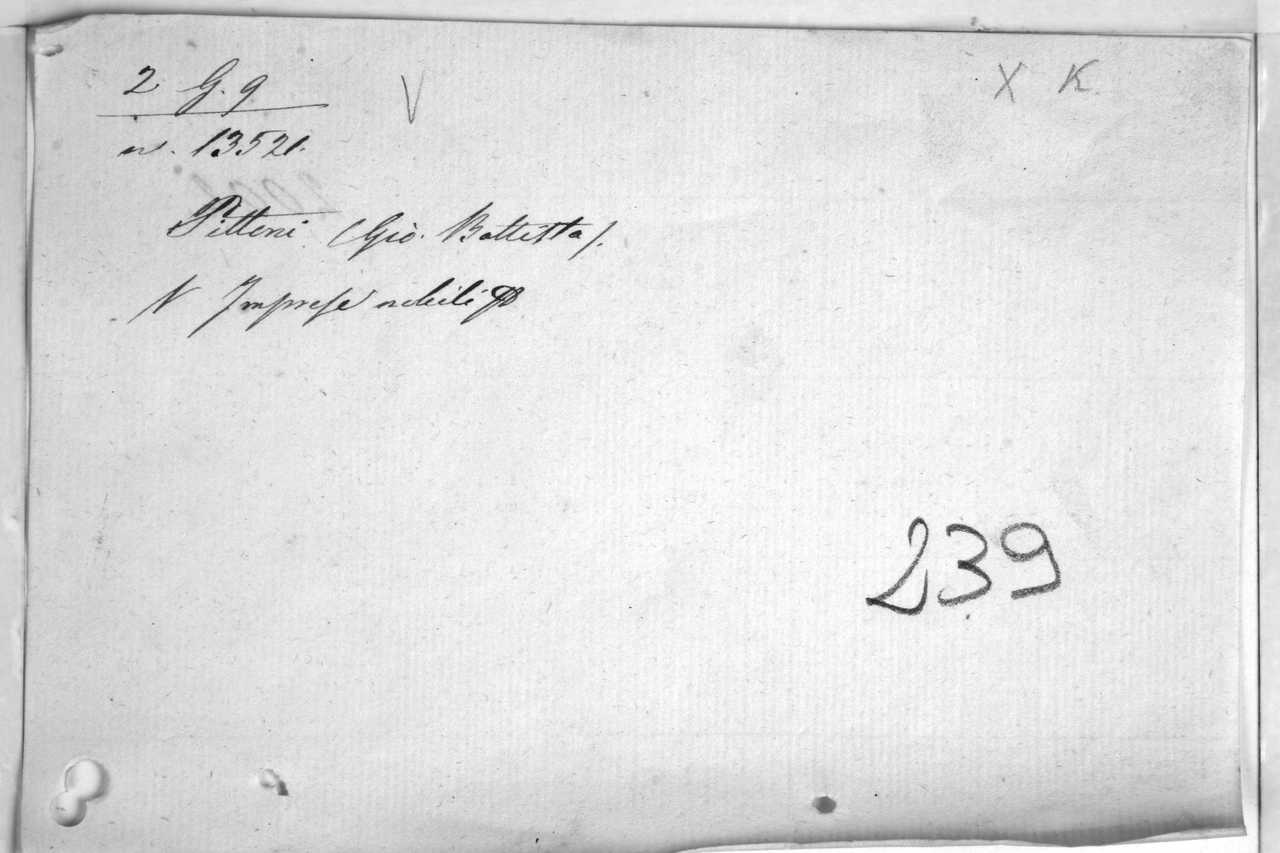 2 G. 9 V X K.
n. 13521.
Pittoni (Gio. Battista).
V Imprese nobili
239